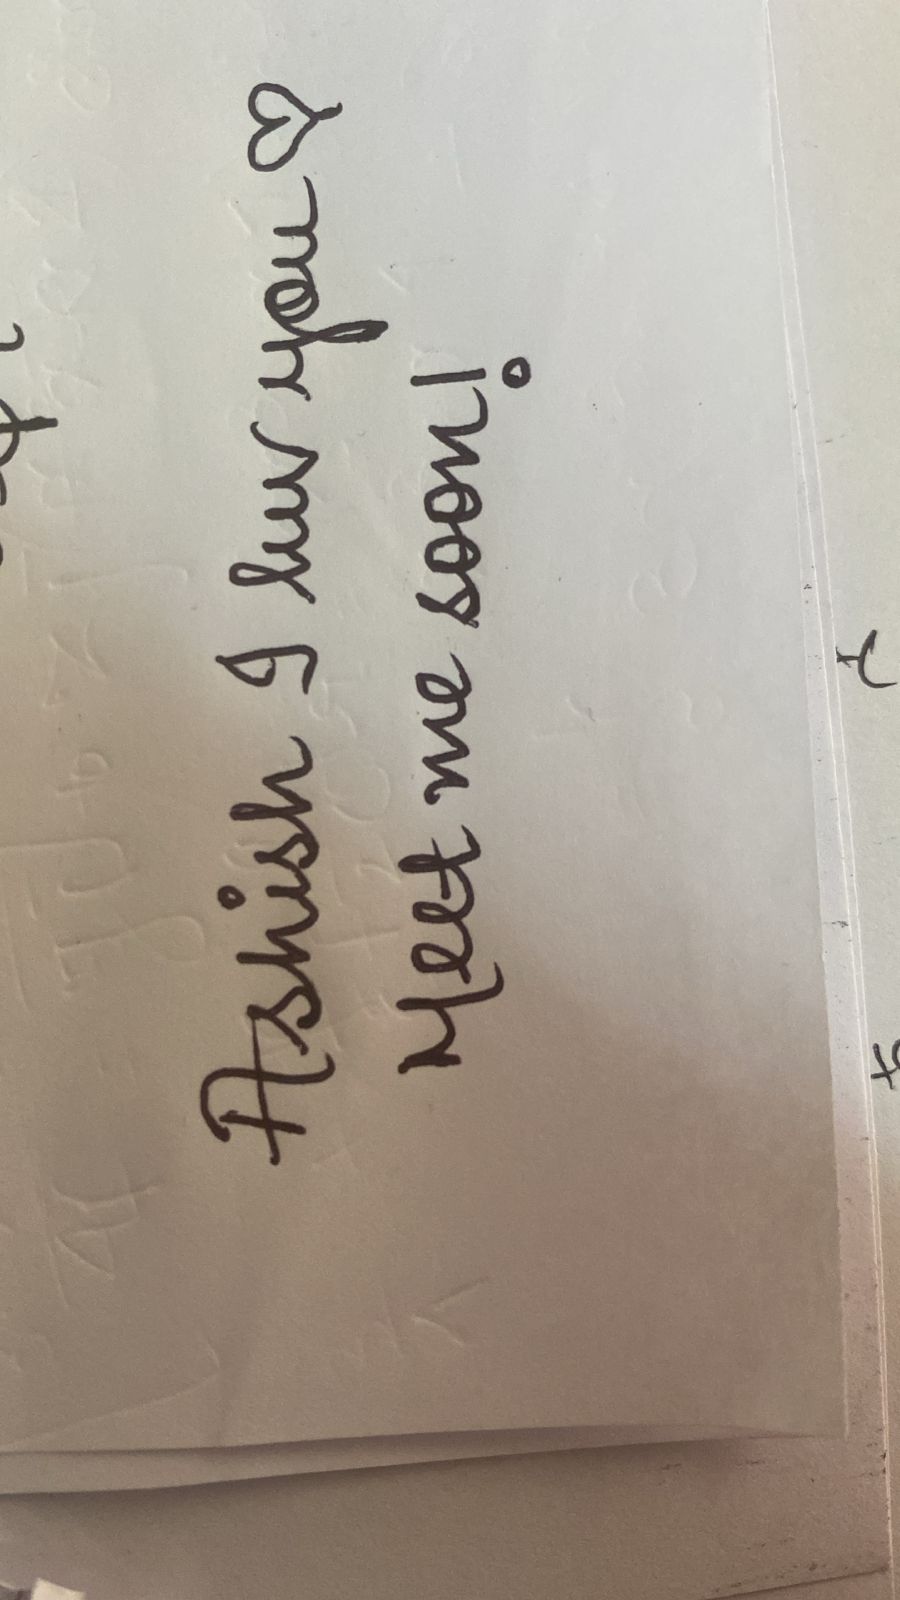 Ashish I luv you ♡
Meet me soon!